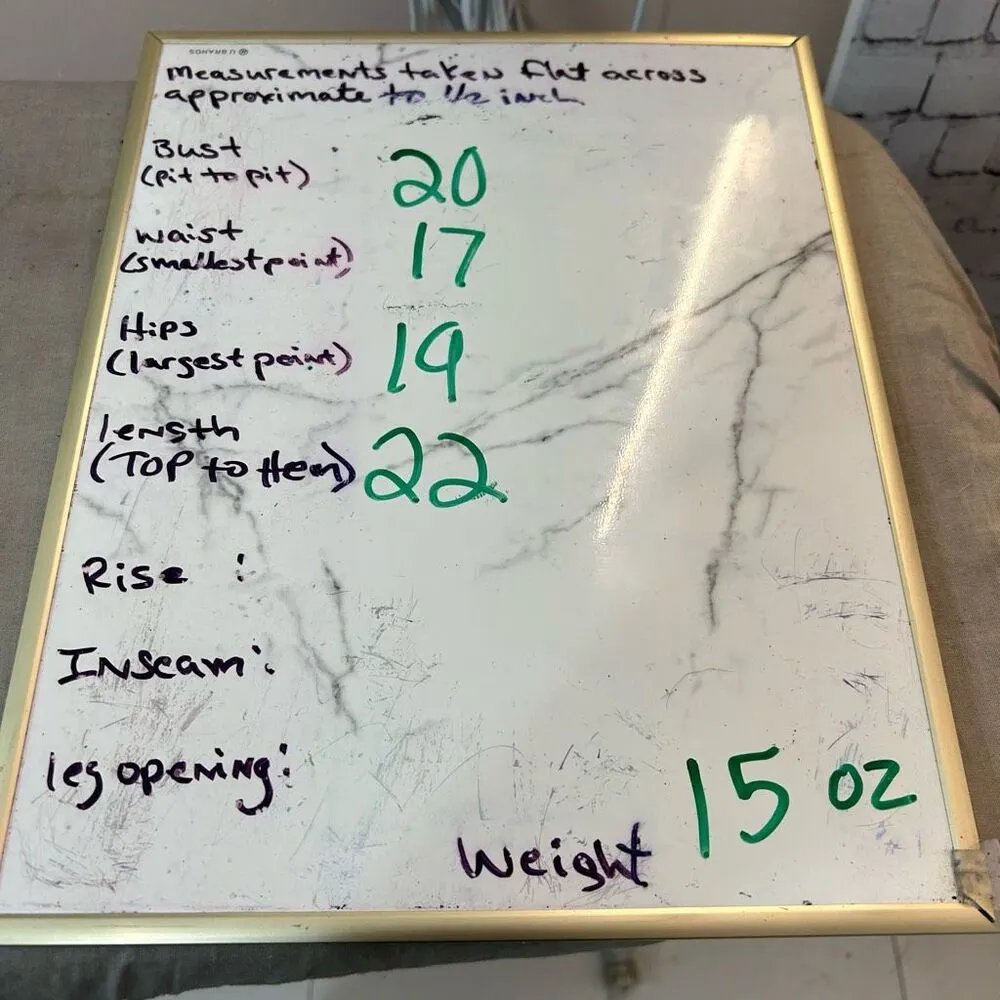 U BRANDS
Measurements taken flat across
approximate to 1/2 inch
Bust 20
(pit to pit)
waist 17
(smallest point)
Hips 19
(largest point)
length 22
(TOP to Hem)
Rise :
INseam:
leg opening:
15 oz
Weight